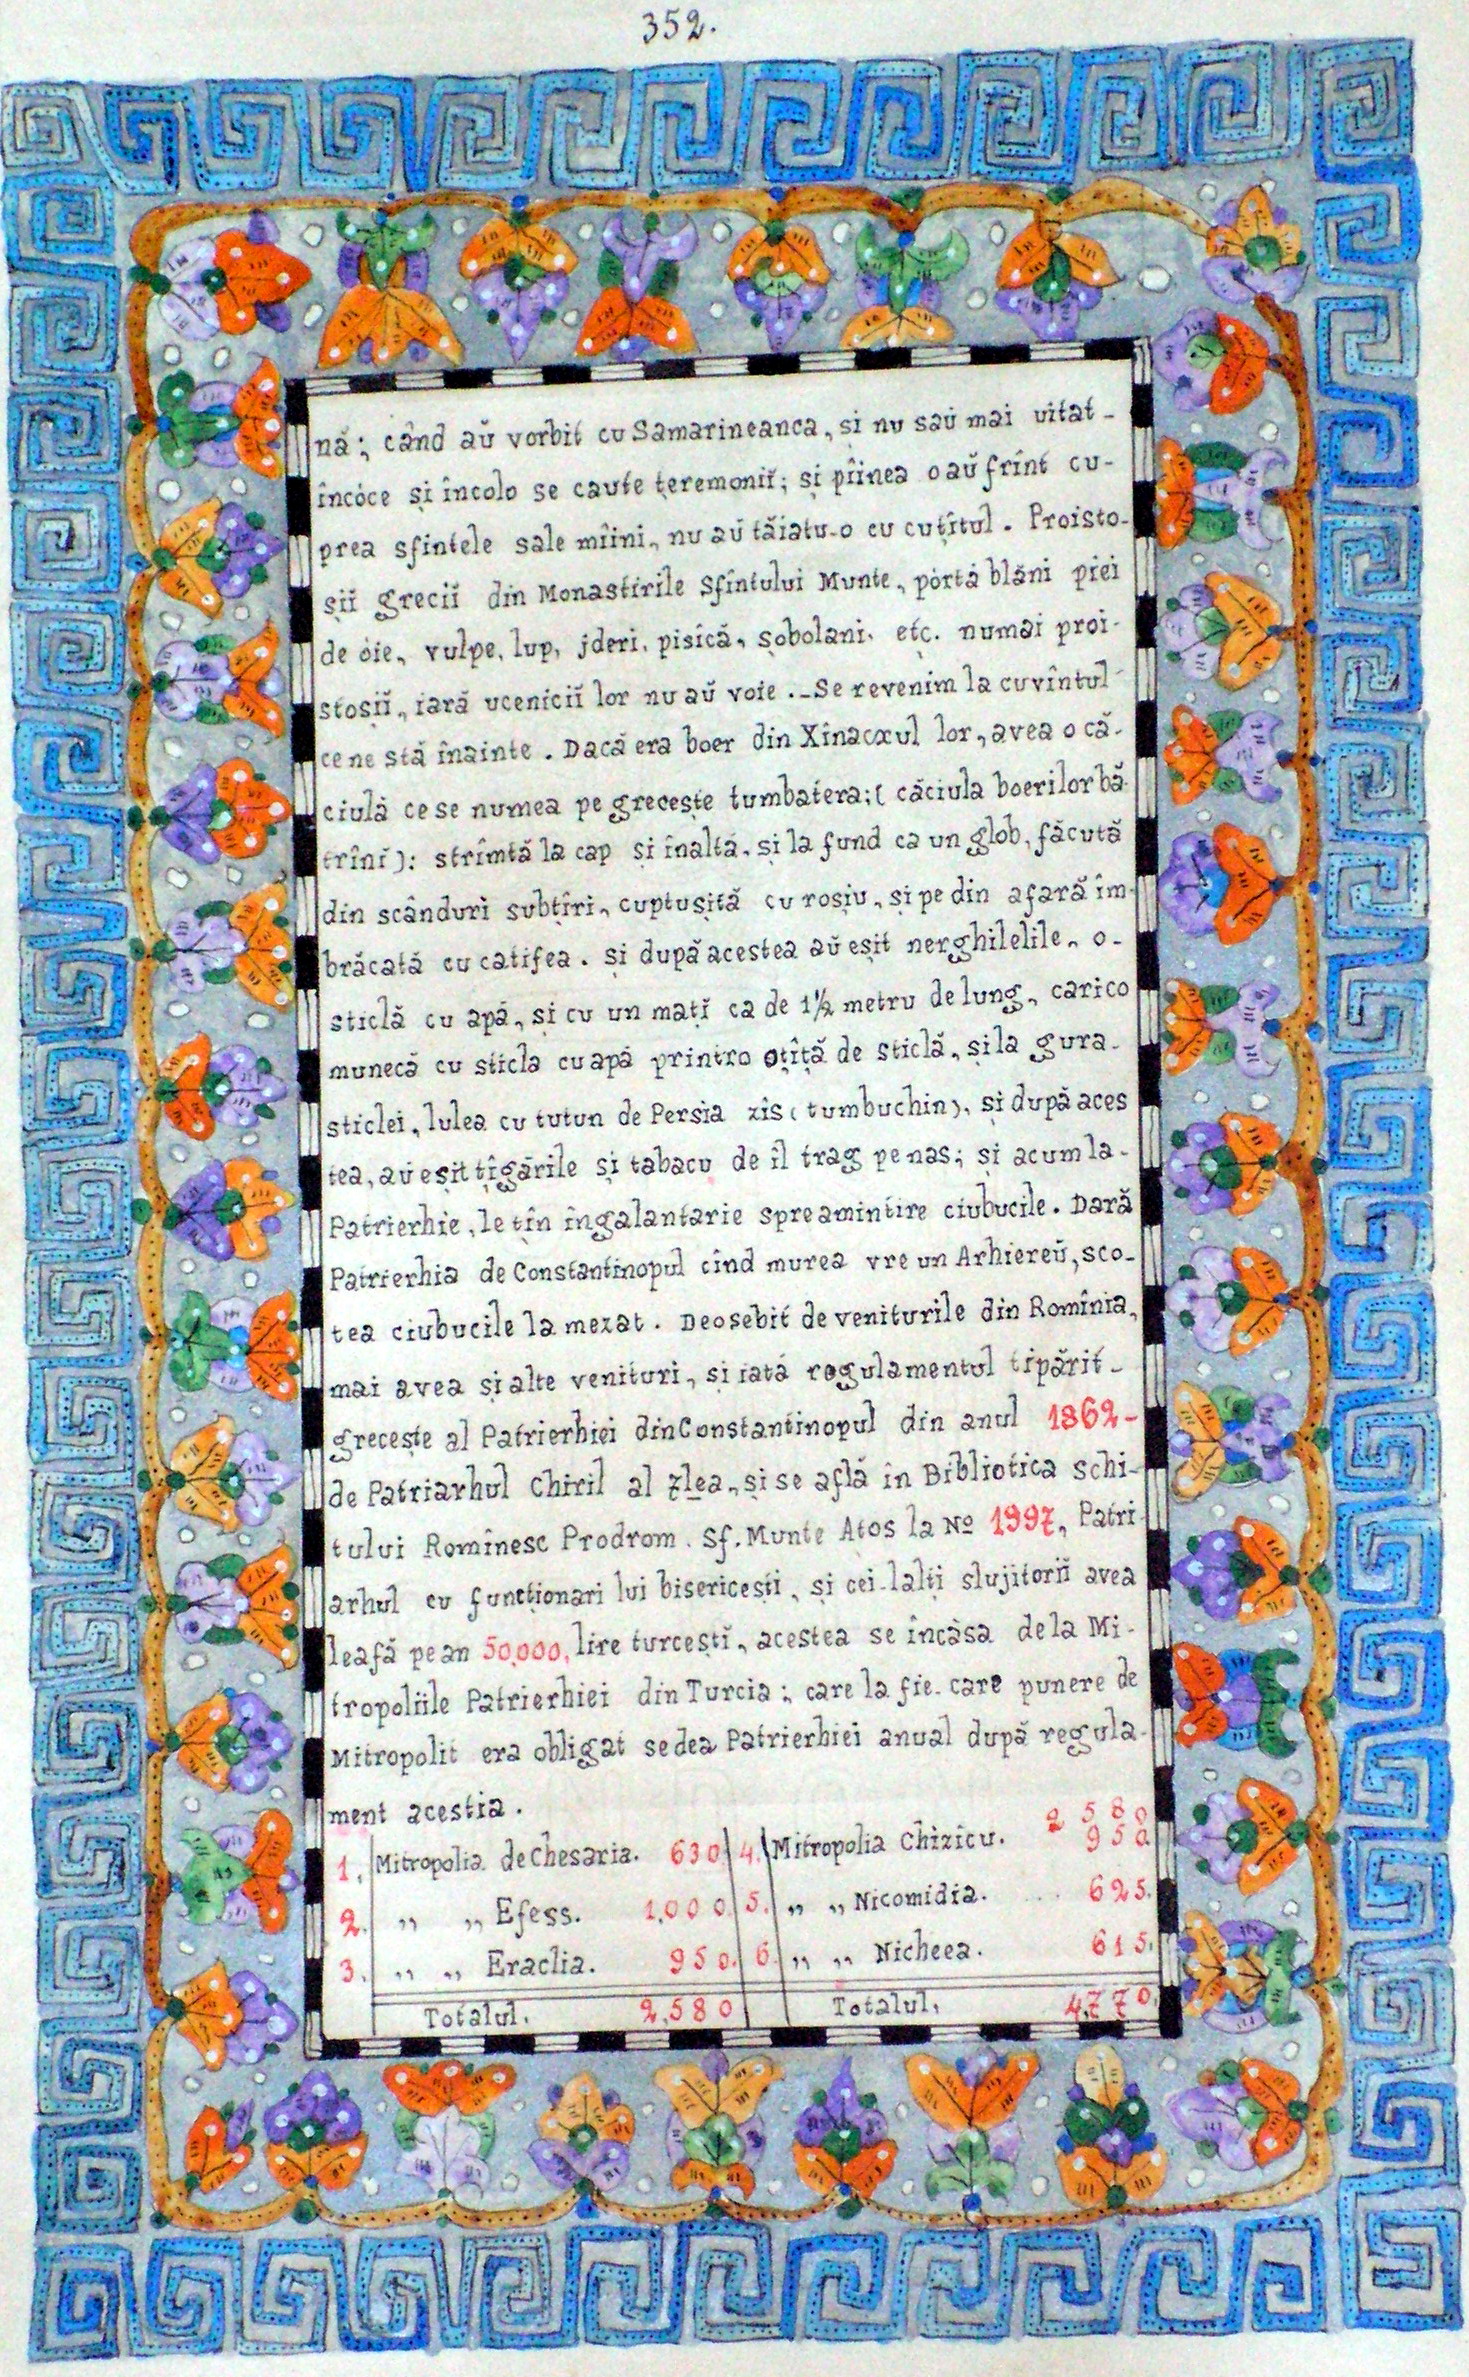 352.
nă; când aŭ vorbit cu Samarineanca, și nu saŭ mai uitat-
încóce și încolo se caute țeremonii; și pîinea o aŭ frînt cu-
prea sfintele sale mîini, nu aŭ tăiatu-o cu cuțîtul. Proisto-
șiĭ greciĭ din Monastirile Sfîntului Munte, pórtă blăni piei
de óie, vulpe, lup, jderi, pisîcă, șobolani, etç. numai proi-
stosiĭ, iară ucenicii lor nu aŭ voie.- Se revenim la cuvîntul
ce ne stă înainte. Dacă era boer din Xînacxul lor, avea o că-
ciulă ce se numea pe grecește tumbatera; ( căciula boerilor bă-
trîni ): strîmtă la cap și înaltă, și la fund ca un glob, făcută
din scânduri subțîri, cuptușită cu roșiu, și pe din afară îm-
brăcată cu catifea. și după acestea aŭ eșit nerghilelile, o-
sticlă cu apă, și cu un mațĭ ca de 1½ metru de lung, carico
munecă cu sticla cu apă printro oțîță de sticlă, și la gura-
sticlei, lulea cu tutun de Persia zîs ( tumbuchin ), și după aces
tea, aŭ eșit țîgările și tabacu de îl trag pe nas; și acum la-
Patrierhie, le țîn în galantarie spre amintire ciubucile. Dară
Patrierhia de Constantinopul cînd murea vre un Arhiereŭ, sco-
tea ciubucile la mezat. Deosebit de veniturile din Romînia,
mai avea și alte venituri, și iată regulamentul tipărit-
grecește al Patrierhiei din Constantinopul din anul 1862-
de Patriarhul Chiril al 7lea, și se află în Bibliotica schi-
tului Romînesc Prodrom. Sf. Munte Atos la No 1997, Patri-
arhul cu funcționari lui bisericești, și cei-lalți slujitorii avea
leafă pe an 50,000, lire turceștĭ, acestea se încăsa de la Mi-
tropoliile Patrierhiei din Turcia; care la fie-care punere de
Mitropolit era obligat se dea Patrierhiei anual după regula-
ment acestia.
2580
1. Mitropolia de Chesaria. 630. 4. Mitropolia Chizicu. 950
2. „ „ Efess. 1,000. 5. „ „ Nicomidia. 625.
3. „ „ Eraclia. 950. 6. „ „ Nicheea. 615.
Totalul. 2,580 Totalul. 4,770